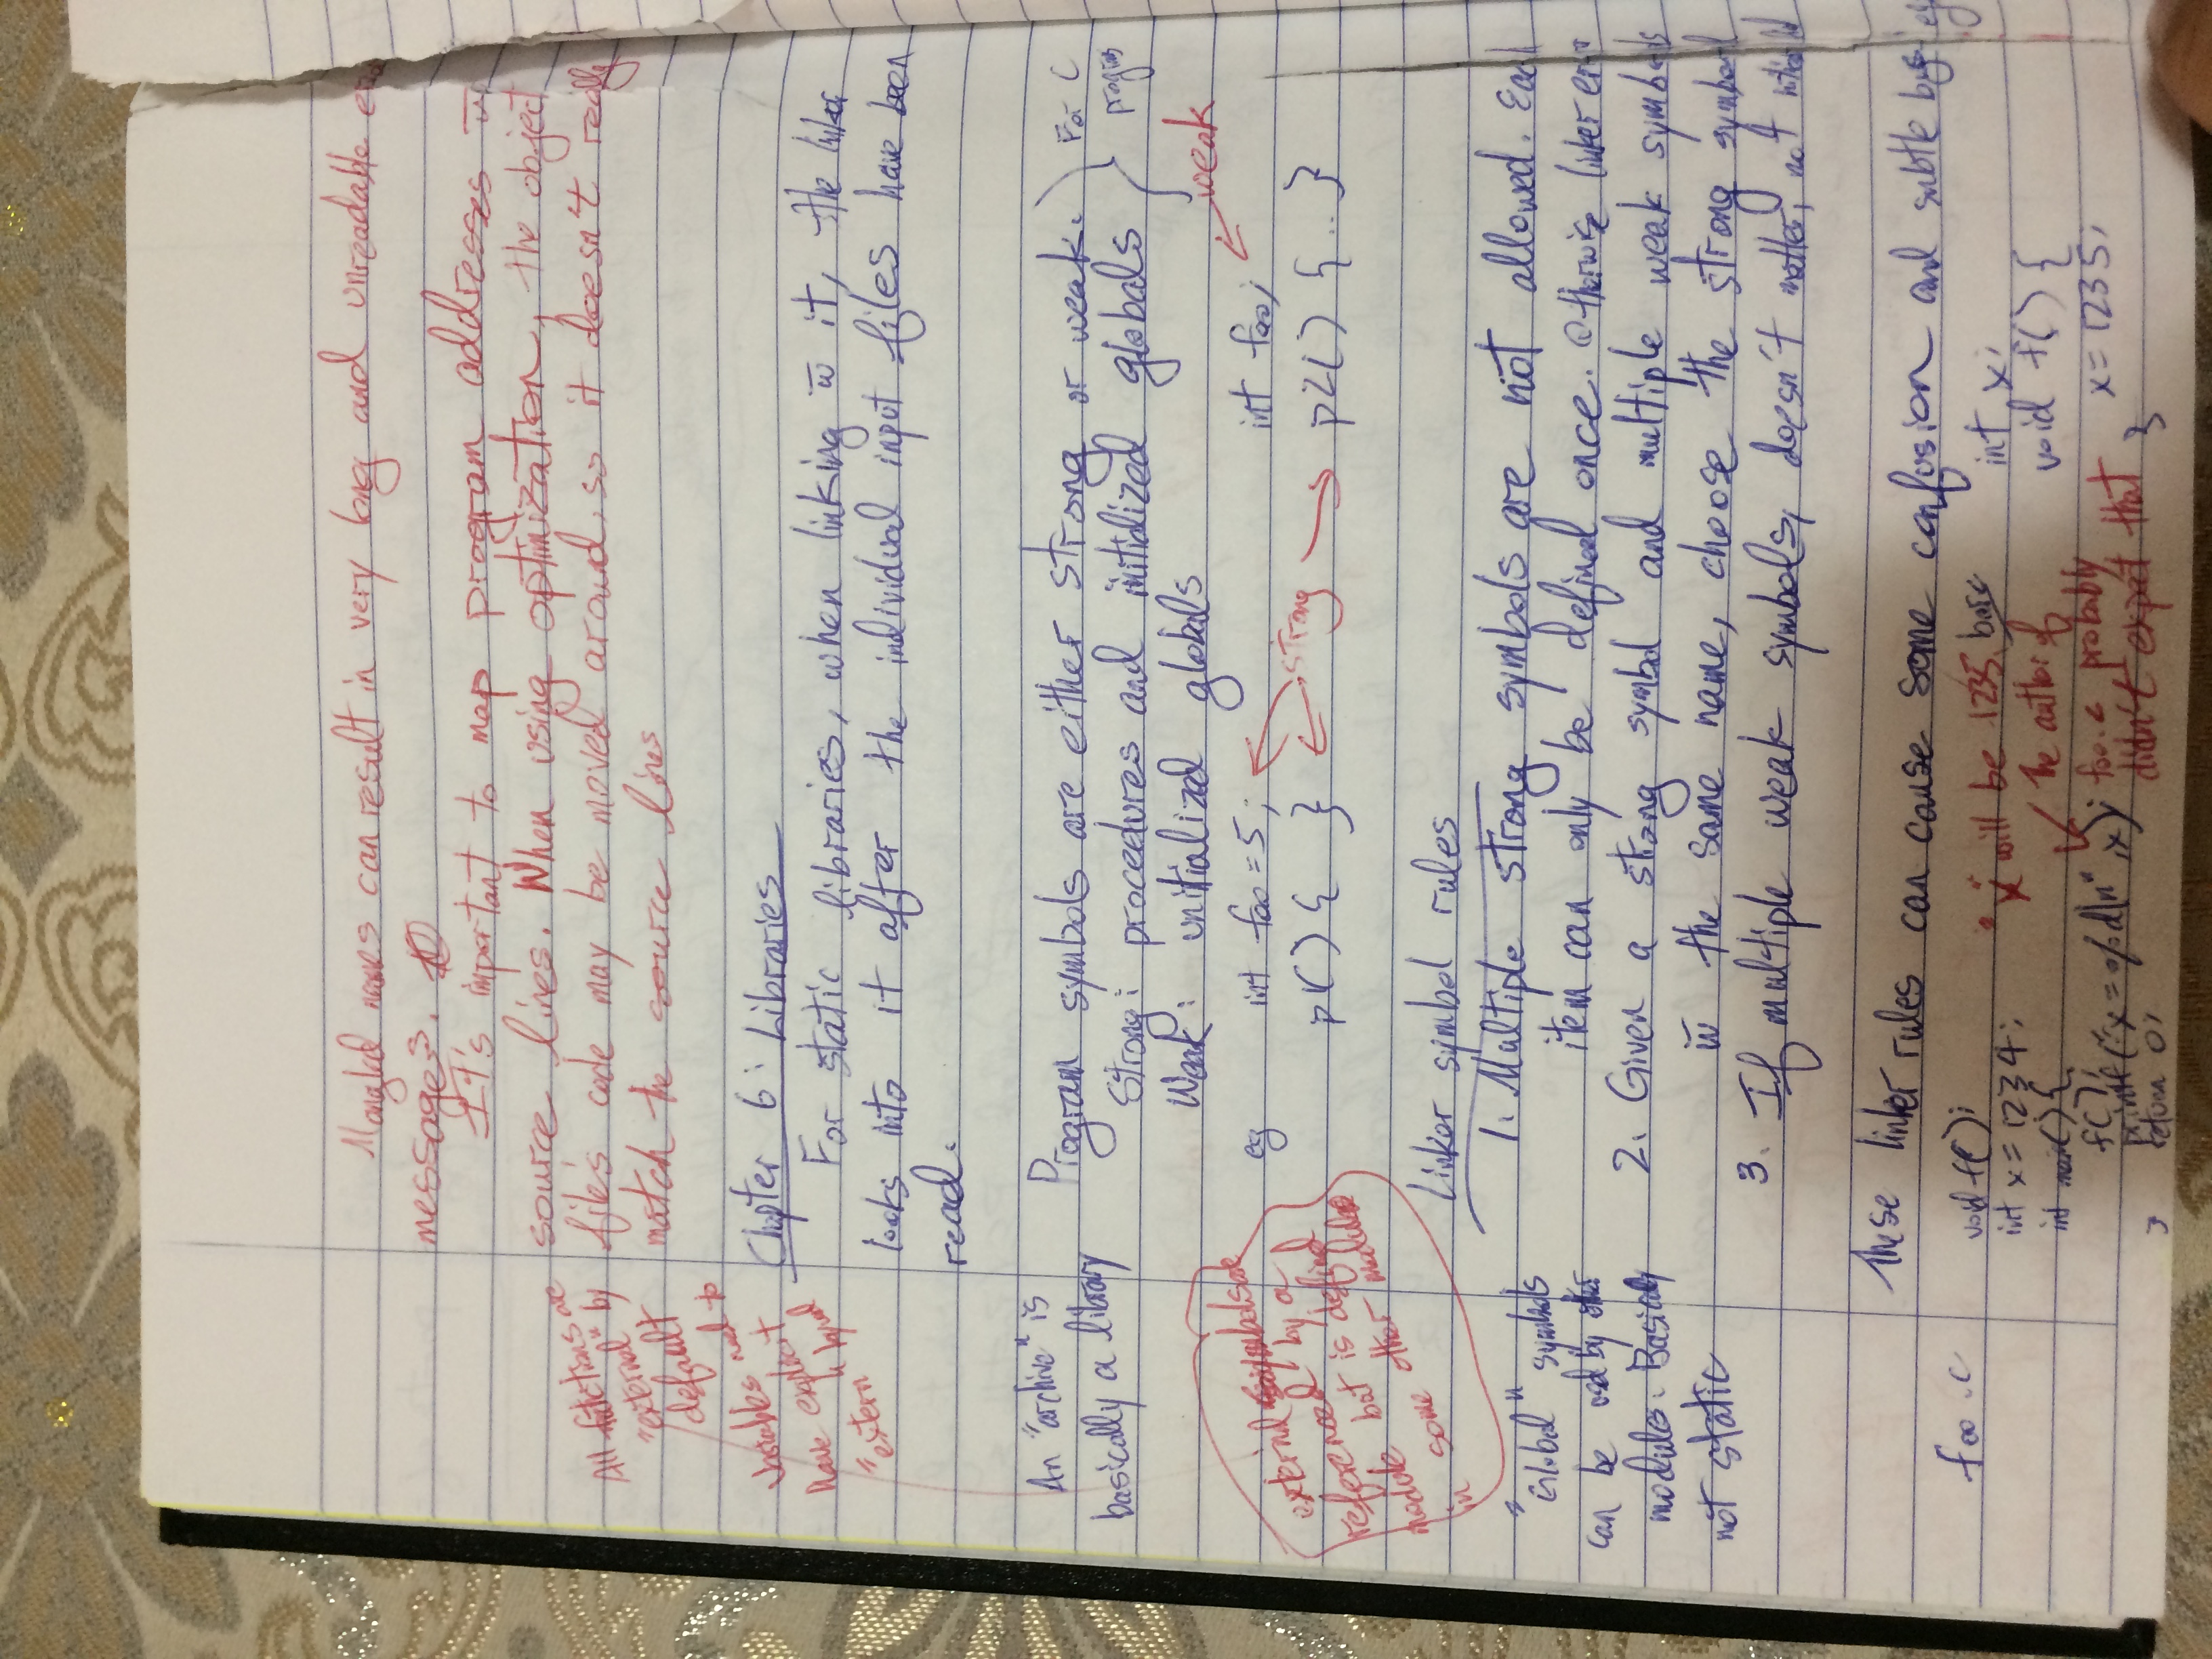 Mangled names can result in very long and unreadable
messages.
It's important to map program addresses w̄
source lines. When using optimization, the object
file's code may be moved around, so it doesn't really
match the source lines
All functions are
"external" by
default
Variables need to
have explicit
"extern" kyword
Chapter 6: Libraries
For static libraries, when linking w̄ it, the linker
looks into it after the individual input files have been
read.
An "archive" is
basically a library
Program symbols are either strong or weak.
Strong: procedures and initialized globals
Weak: unitialized globals
For C
progrms
weak
eg int foo = 5; int foo;
p1() { } strong p2() { .. }
external symbols are
referenced by a
module but is defined
in some other module
Linker symbol rules
1. Multiple strong symbols are not allowed. Each
item can only be defined once. Otherwise linker error
2. Given a strong symbol and multiple weak symbols
w̄ the same name, choose the strong symbol
3. If multiple weak symbols, doesn't matter, not
"Global" symbols
can be used by other
modules. Basically
not static
These linker rules can cause some confusion and subtle bugs eg
foo.c
void f();
int x = 1234;
int main() {
f();
printf("x = %d\n", x);
return 0;
}
"x" will be 1235.
The author of
foo.c probably
didn't expect that
bar.c
int x;
void f() {
x = 1235;
}